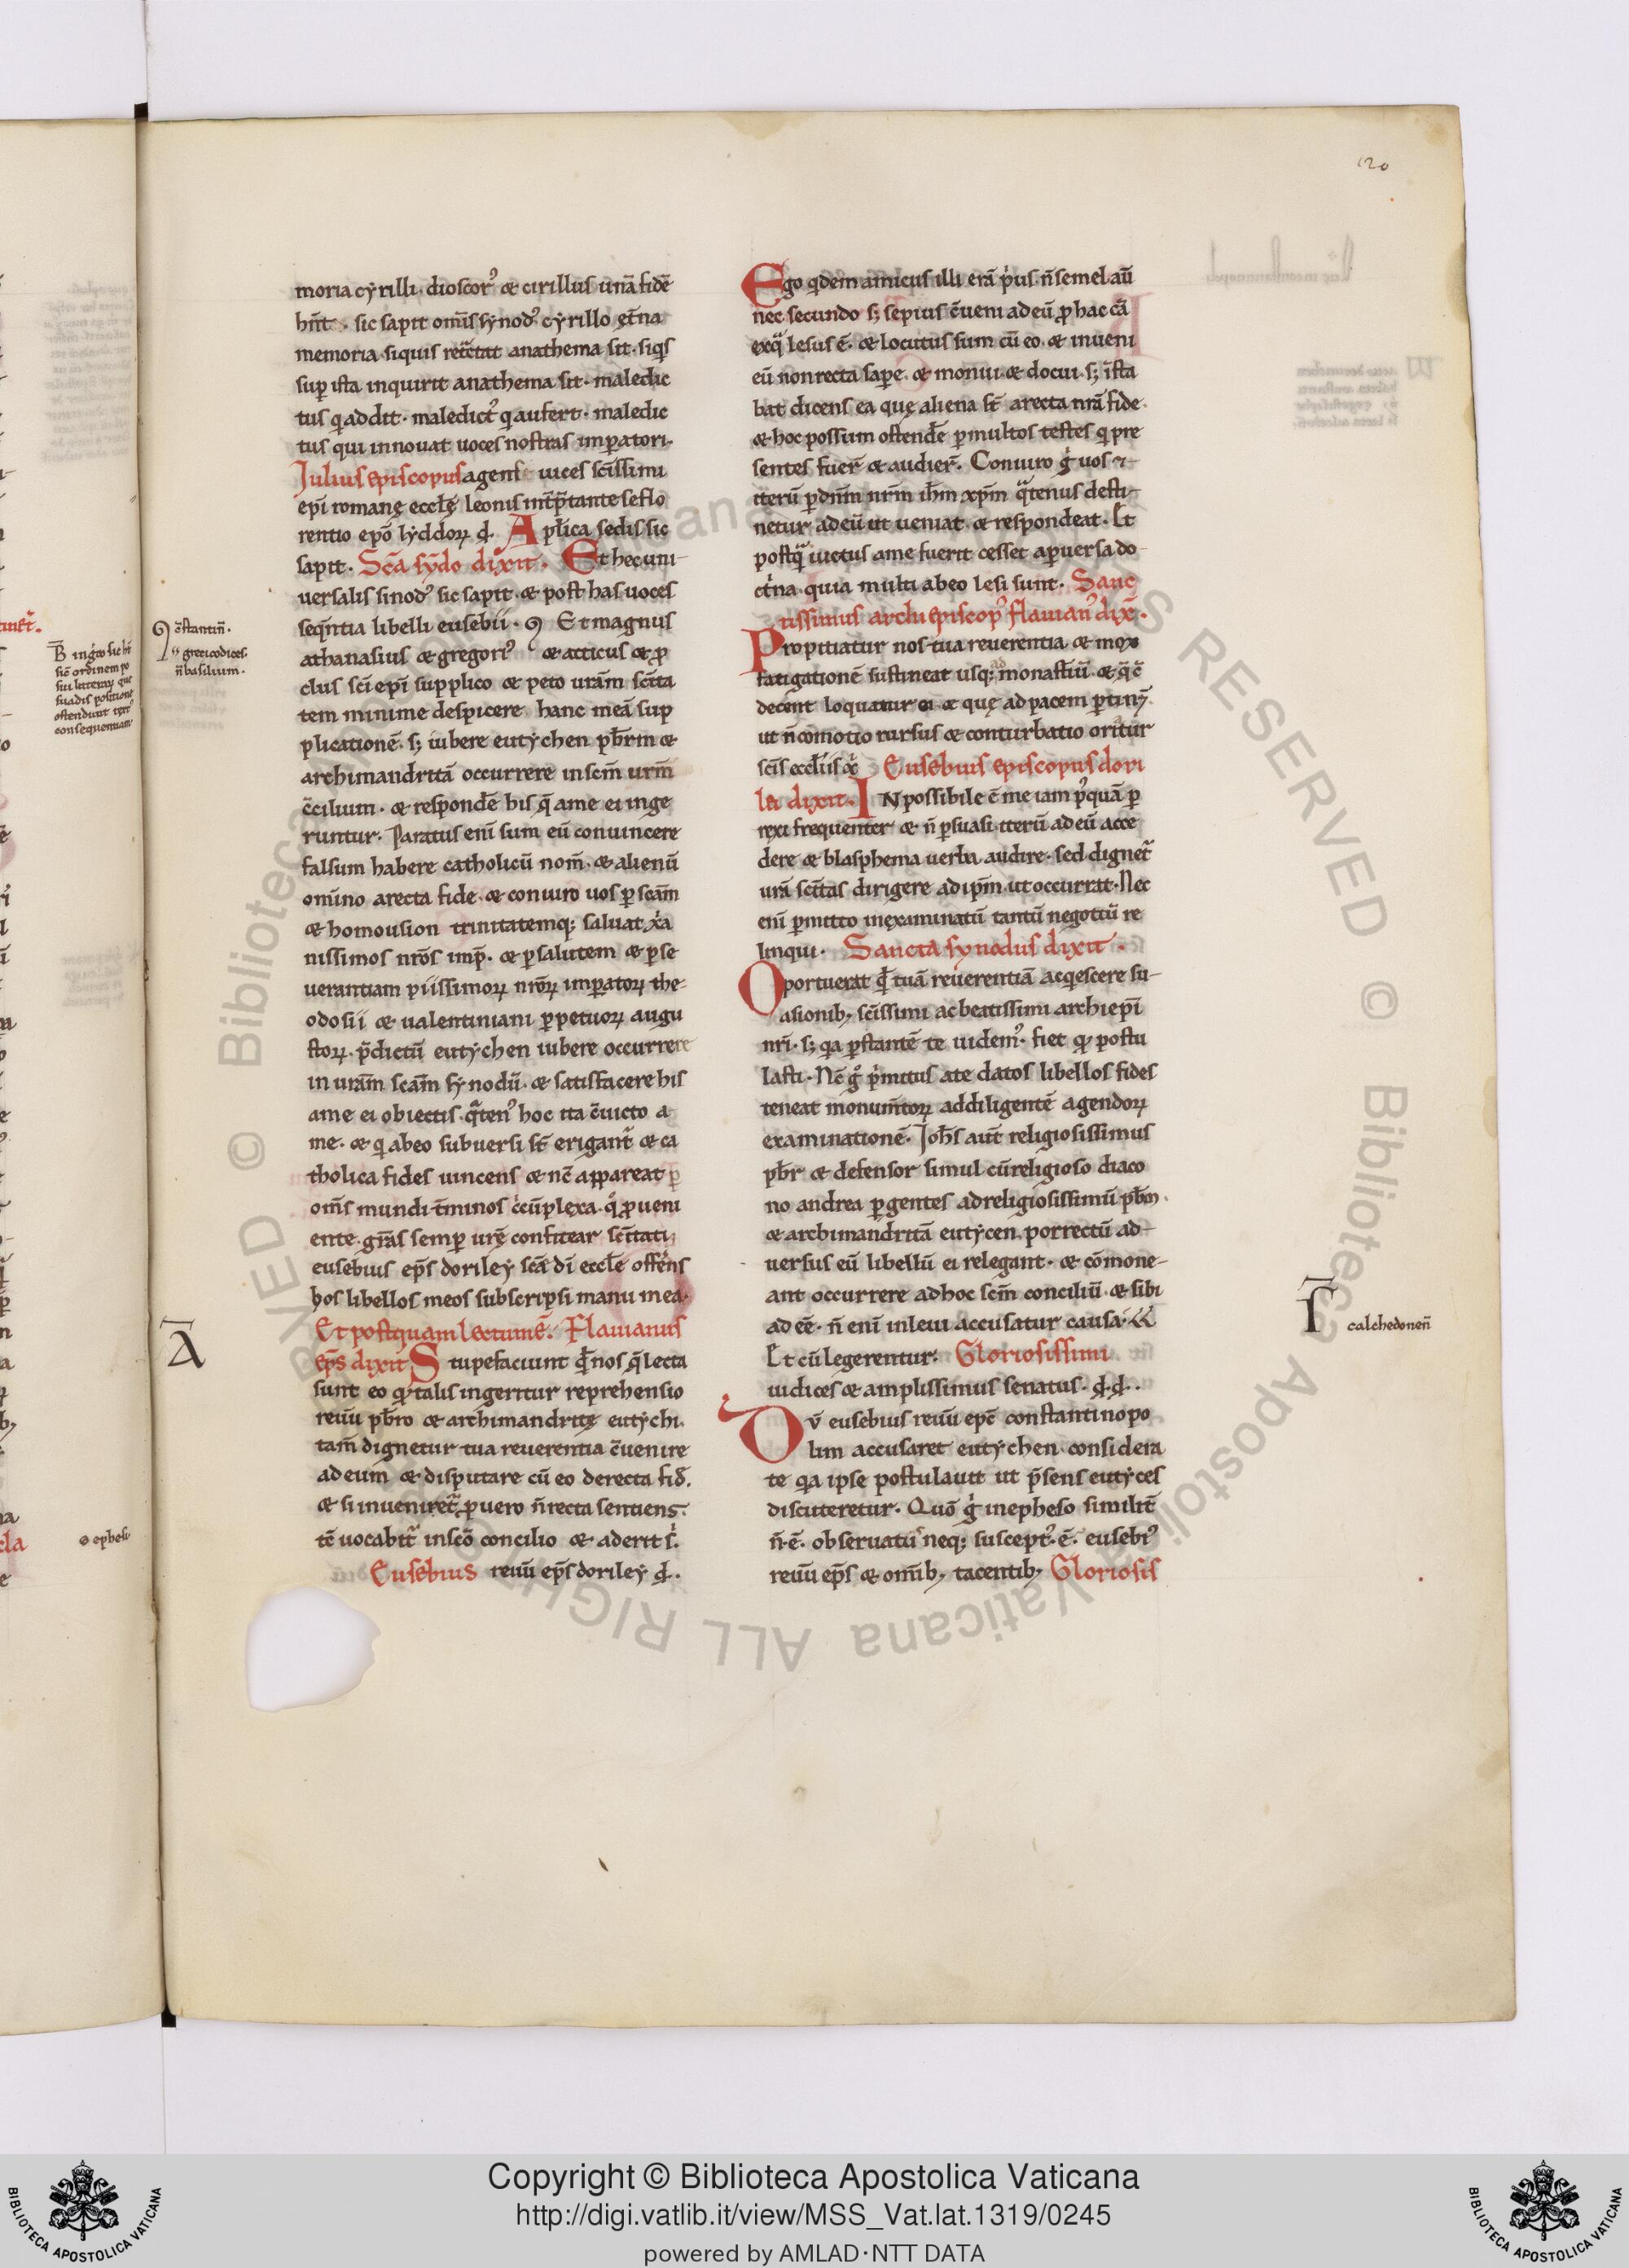 120
moria cyrilli. dioscor' & cirillus unā fidē
hn̄t. sic sapit om̄s synod' cyrillo ęt̄na
memoria. siquis retractat anathema sit. siq̇s
sup ista inquirit anathema sit. maledic
tus q addit. maledict' q aufert. maledic
tus qui innouat uoces nostras imperatori.
Iulius episcopus agens uices sc̄issimi
ep̄i romanę eccl̄ę leonis int̄p̄tante se flo
rentio ep̄o lyddoꝝ d̄. Ap̄lica sedis sic
sapit. Sc̄a sȳdo dixit. Et hec uni-
uersalis sinod' sic sapit. & post has uoces
seq̄ntia libelli eusebii. 9 Et magnus
athanasius & gregori' & atticus & ꝓ
clus sc̄i ep̄i supplico & peto ur̄am sc̄ita
tem minime despicere hanc meā sup
plicationē. s; iubere eutychen pb̄rm &
archimandritā occurrere in scm̄ urm̄
c̄cilium. & respondē his q̄ a me ei inge
runtur. Paratus eni sum eū conuincere
falsum habere catholicū nom̄. & alienū
omīno a recta fide. & coniuro uos ꝑ scam̄
& homousion trinitatemq; saluat. x̄a
nissimos nr̄os imp̄. & ꝑ salutem & ꝑseuerantiam piissimoꝝ nr̄oꝝ imꝑatoꝝ the-
odosii & ualentiniani ꝑpetuoꝝ augu
stoꝝ. p̄dictū eutychen iubere occurrere
in uram̄ scam̄ synodū. & satisfacere his
a me ei obiectis. q̄ten' hoc ita c̄uicto a
me. & q ab eo subuersi st̄ erigant̄ & ca
tholica fides uincens & nc̄ appareat ꝑ
om̄s mundi t̄minos c̄cūplexa. q̊ ꝓueni
ente. gr̄as semꝑ urę̄ confitear sc̄itati;
eusebius ep̄s doriley sc̄ā dī eccl̄e offerēns
hos libellos meos subscripsi manu mea.
Et postquam lectum ē. Flauianus
ep̄s dixit Stupefaciunt q̄d nos q̄ lecta
sunt eo qd talis ingeritur reprehensio
reuū pb̄ro & archimandritę eutychi.
tam̄ dignetur tua reuerentia c̄uenire
ad eum & disputare cū eo de recta fid̄.
& si inueniret̄ ꝓ uero n̄ recta sentiens.
tc̄ uocabit̄ in sc̄o concilio & aderit s.
Eusebius reuū ep̄s doriley d̄.
Ego qdem amicus illi erā p̓us. n̄ semel aū
nec secundo s; sepius c̄ueni ad eū ꝓ hac cā
ex q̄ lesus ē. & locutus sum cū eo. & inueni
eū non recta saꝑe. & monui. & docui. s; ista
bat dicens ea quę aliena st̄ a recta nrā fide.
& hoc possum ostendē ꝑ multos testes q pre
sentes fuer̄ & audier̄. Coniuro g̓ uos &
iterū ꝑ dnm̄ nrm̄ ih̄m xp̄m q̄tenus desti-
netur ad eū ut ueniat. & respondeat. Et
postq̄ uictus a me fuerit cesset a ꝑuersa do
ct̓na. quia multi ab eo lesi sunt. Sanc
tissimus archiepiscop' flauian' dix̄.
Propitiatur nos tua reuerentia. & mox
fatigationē sustineat usq; ad monastiū. & q̄c̄
decent loquatur ei. & quę ad pacem ꝑtinȳ.
ut n̄ comotio rursus & conturbatio oritur
scīs eccl̄iis Eusebius episcopus dori
lei dixit. INpossibile ē me iam p'quā ꝑ
rexi frequenter & n̄ ꝑsuasi iterū ad eū acce
dere & blasphema uerba audire. sed dignet̄
urā sc̄itas dirigere ad ipm̄. ut occurrat. Nec
eni ꝑmitto inexaminatū tantū negotiū re
linqui. Sancta synodus dixit.
Oportuerat q̄d tuā reuerentiā acq̇escere su-
asionib; sc̄issimi ac beatissimi archiep̄i
nr̄i. s; qa ꝑstantē te uidem'. fiet qd postu
lasti. Nc̄ g̊ p̓mitus a te datos libellos fides
teneat monum̄toꝝ ad diligentē agendoꝝ
examinationē. Ioh̄s aut̄ religiosissimus
pb̄r & defensor simul cū religioso diaco
no andrea ꝑgentes ad religiosissimū pb̄rm.
& archimandritā eutycen. porrectū ad-
uersus eū libellū ei relegant. & cōmone-
ant occurrere ad hoc scm̄ conciliū. & sibi
ad eē. n̄ eni in leui accusatur causa.
Et cū legerentur. Gloriosissimi
iudices & amplissimus senatus. d̄.d̄.
Dū eusebius reuū epc̄ constantinopo
lim accusaret eutychen. considera
te qa ipse postulauit ut p̄sens eutyces
discuteretur. Quō g̓ in epheso similit̄
n̄.ē. obseruatū neq; suscept'.ē. eusebi'
reuū ep̄s & om̄ib; tacentib; Gloriosis
9 c̄stantin̄.
greci codices.
n̄ basilium.
B in greco sic hn̄t
ephesi
Ā
Γ̄
calchedonen̄
© Biblioteca Apostolica Vaticana ALL RIGHTS RESERVED
© Biblioteca Apostolica Vaticana ALL RIGHTS RESERVED
Copyright © Biblioteca Apostolica Vaticana
http://digi.vatlib.it/view/MSS_Vat.lat.1319/0245
powered by AMLAD·NTT DATA
BIBLIOTECA APOSTOLICA VATICANA
BIBLIOTECA APOSTOLICA VATICANA